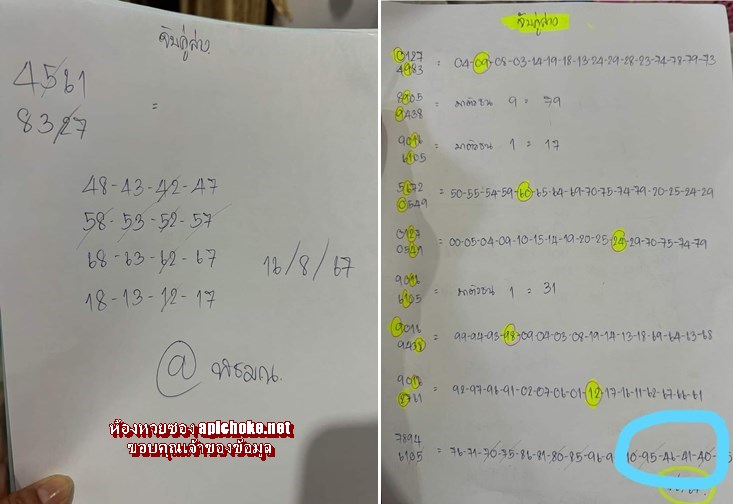 จับคู่ล่าง
4561
8327
=
48-43-42-47
58-53-52-57
68-63-62-67
18-13-12-17
16/8/67
@
ห้องหวยซอง apichoke.net
ขอบคุณเจ้าของข้อมูล
จับคู่ล่าง
0127
4983 = 04-09-08-03-14-19-18-13-24-29-28-23-74-78-79-73
8905
9438 = มาตัวชน 9 = 79
9016
6105 = มาตัวชน 1 = 17
5672
0549 = 50-55-54-59-60-65-64-69-70-75-74-79-20-25-24-29
0127
0541 = 00-05-04-09-10-15-14-19-20-25-24-29-70-75-74-79
9016
6105 = มาตัวชน 1 = 31
9016
= 99-94-93-98-09-04-03-08-19-14-13-18-69-64-63-68
9016
2761 = 92-97-96-91-02-07-06-01-12-17-16-11-62-67-66-61
7894
6105 = 76-71-70-75-86-81-80-85-96-9 0-95-46-41-40-